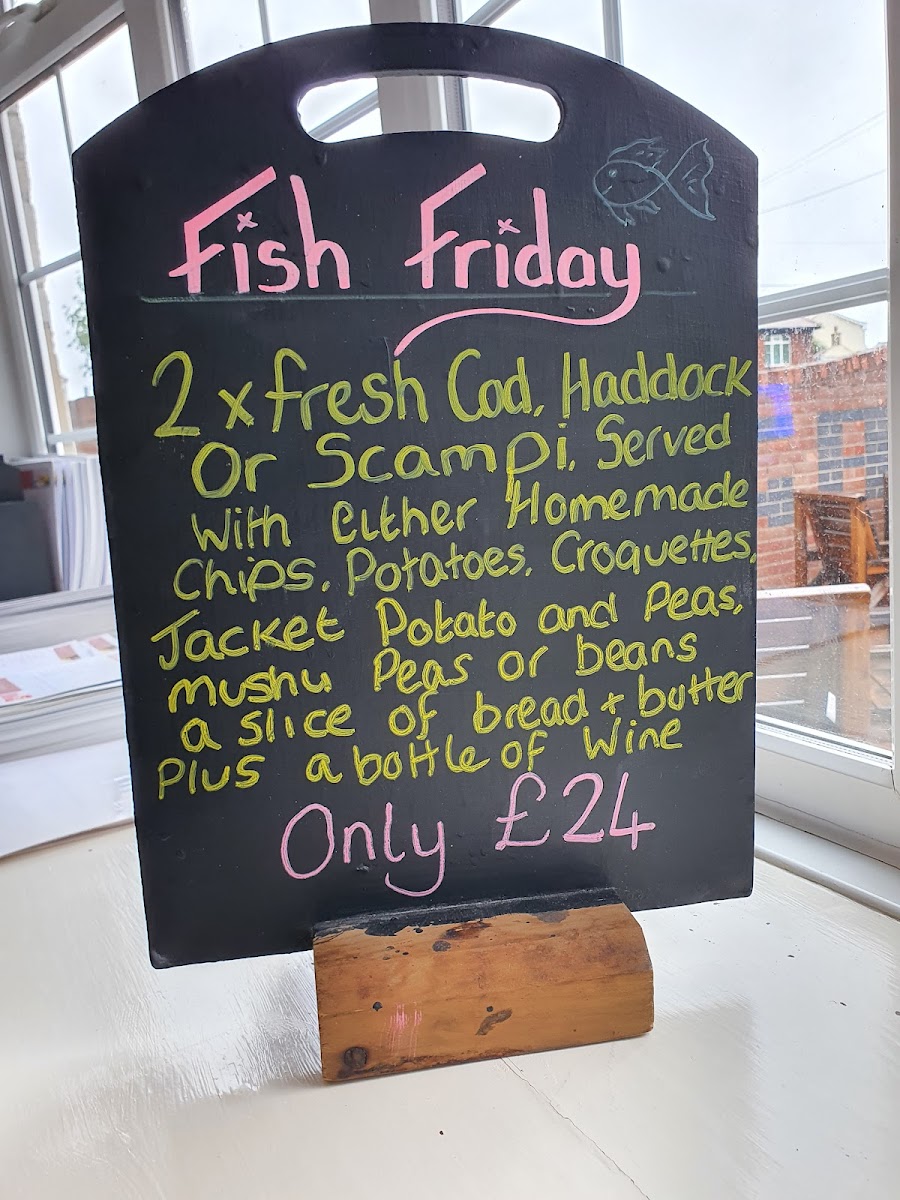 Fish Friday
2 x fresh Cod, Haddock
Or Scampi. Served
With either Homemade
Chips, Potatoes, Croquettes,
Jacket Potato and Peas,
mushu Peas or beans
a slice of bread + butter
Plus a bottle of Wine
Only £24